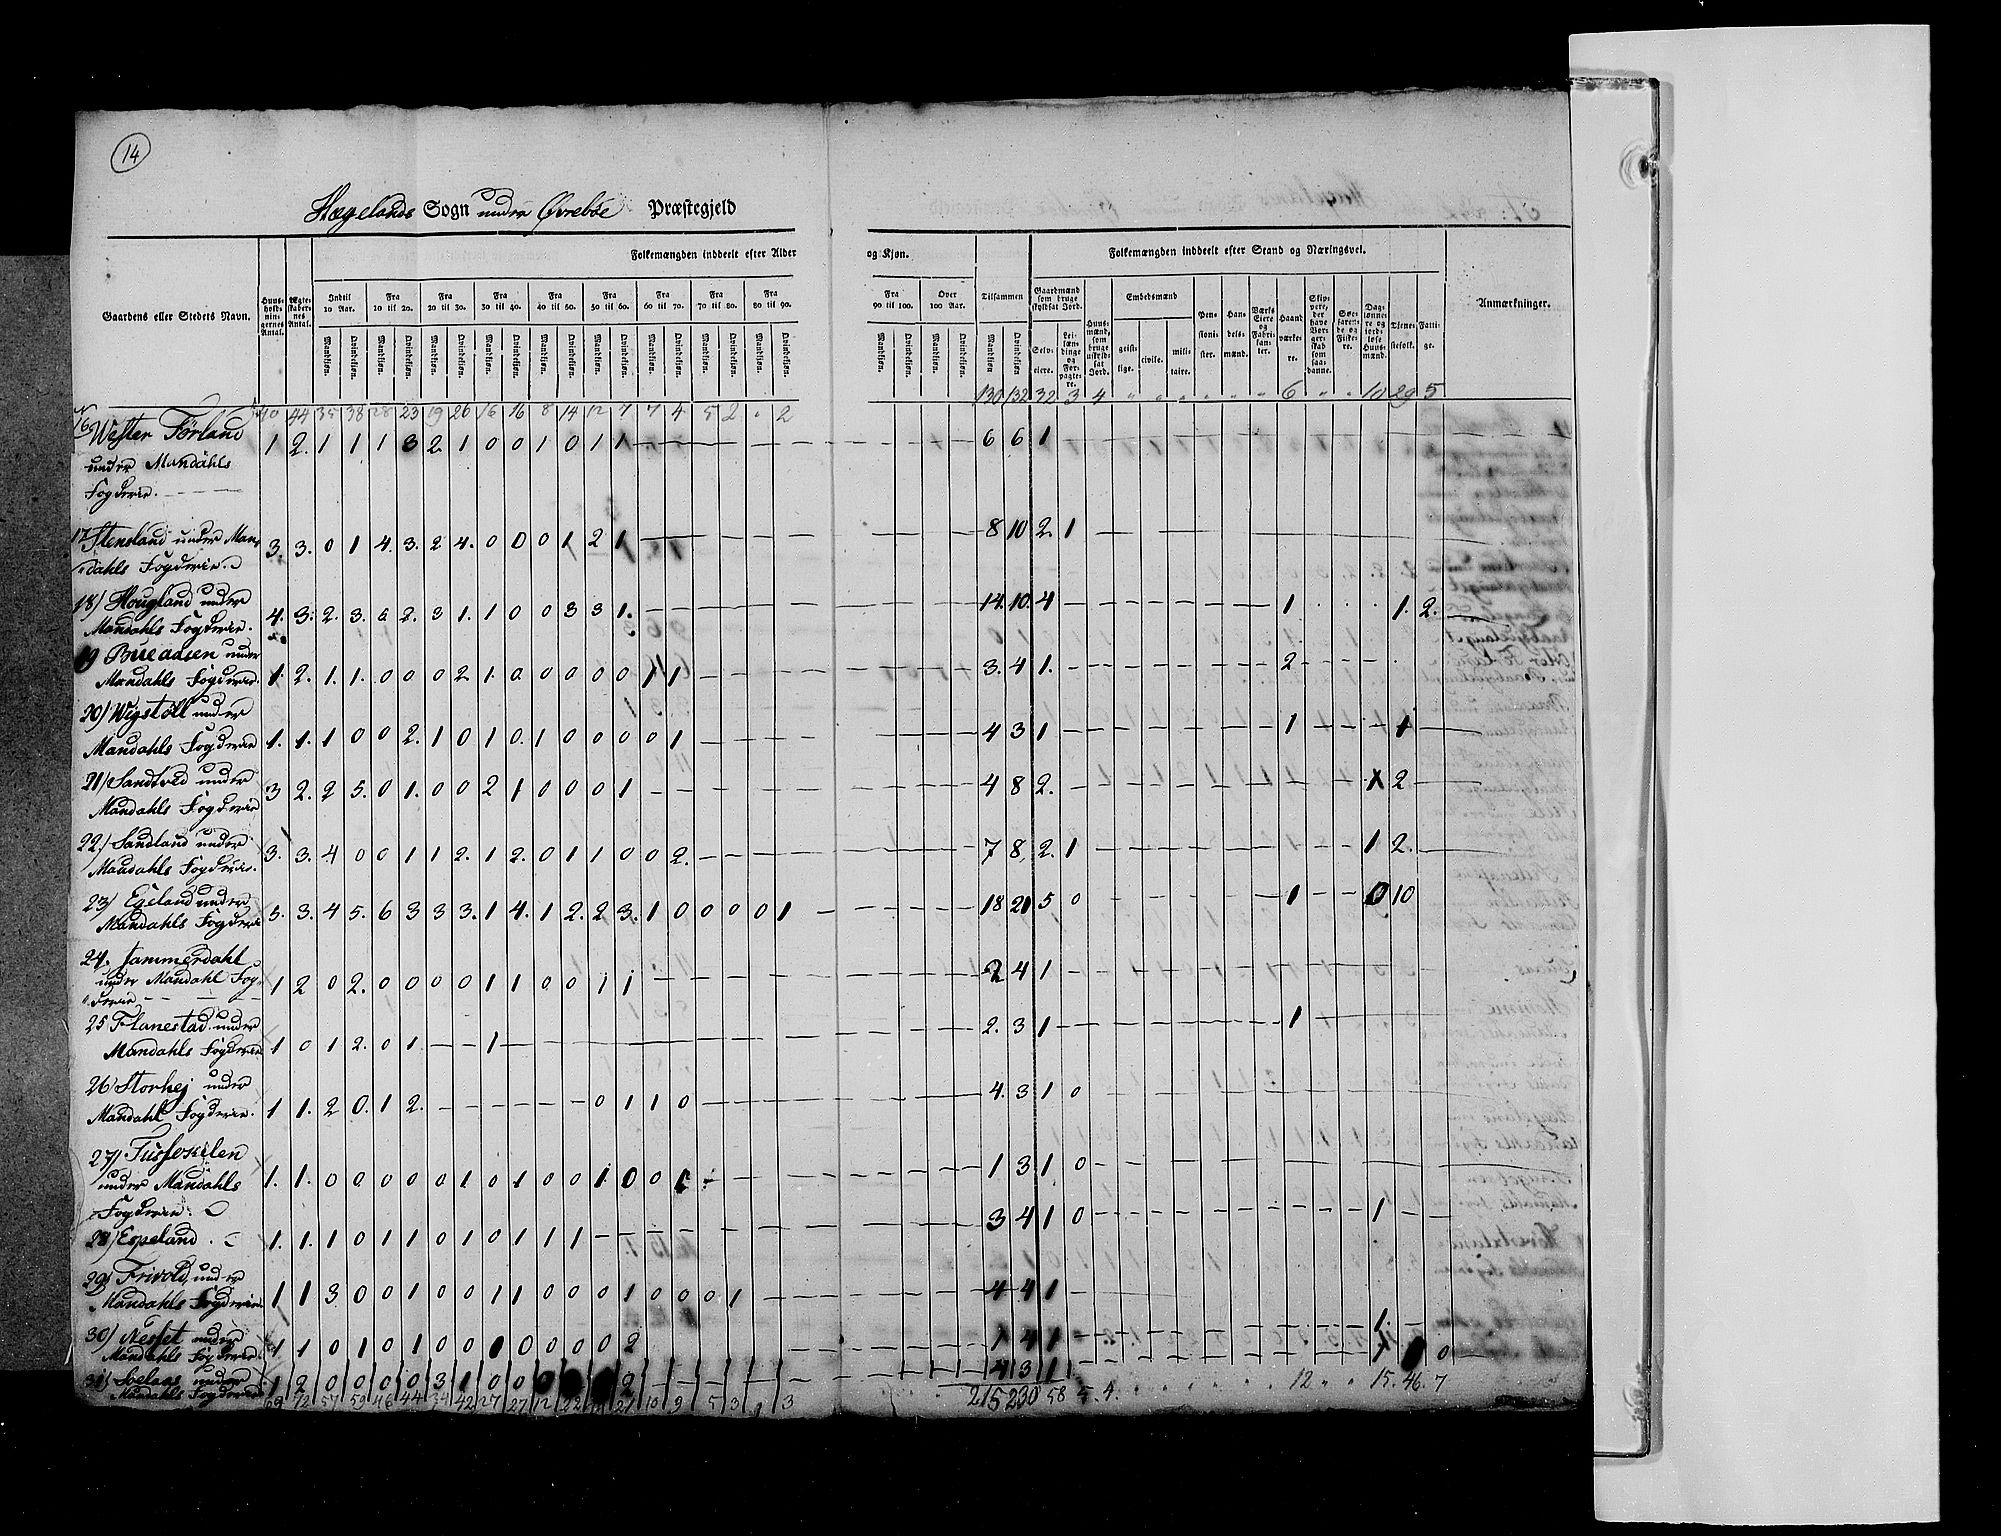 14
Hægelands Sogn under Øvrebøe Præstegjeld
Folkemængden inddeelt efter Alder og Kjøn. Folkemængden inddeelt efter Stand og Næringsvei.
Gaardens eller Stedets Navn. Huusholdningernes Antal. Ægteskabernes Antal. Indtil 10 Aar. Fra 10 til 20. Fra 20 til 30. Fra 30 til 40. Fra 40 til 50. Fra 50 til 60. Fra 60 til 70. Fra 70 til 80. Fra 80 til 90. Fra 90 til 100. Over 100 Aar. Tilsammen Gaardmænd som bruge skyldsat Jord. Selveiere. Leilændinge og Forpagtere. Huusmænd, som bruge uskyldsat Jord. Embedsmænd geistlige. civile. militaire. Pensionister. Handelsmænd. Værks Eiere og Fabrikanter. Haandværkere. Skippere, der have Borgerskab som saadanne. Søefarende og Fiskere. Daglønnere og jordløse Huusmænd. Tjenestefolk. Fattige. Anmærkninger.
Mandkjøn. Qvindekjøn. Mandkjøn. Qvindekjøn. Mandkjøn. Qvindekjøn. Mandkjøn. Qvindekjøn. Mandkjøn. Qvindekjøn. Mandkjøn. Qvindekjøn. Mandkjøn. Qvindekjøn. Mandkjøn. Qvindekjøn. Mandkjøn. Qvindekjøn. Mandkjøn. Qvindekjøn. Mandkjøn. Qvindekjøn. Mandkjøn. Qvindekjøn.
40 44 35 38 28 23 19 26 16 16 8 14 12 7 7 4 5 2 " 2 130 132 32 3 4 " " " " " " 6 " " 10 29 5
16 Wester Förland 1 2. 1 1 1 3 2. 1 0 0 1 0 1 1 6 6 1
under Mandahls
Fogderie.
17 Stensland under Man- 3. 3. 0 1 4. 3. 2 4. 0 0 0 1 2 1 8 10 2. 1
dahls Fogderie.
18) Hougland under
Mandahls Fogderie. 4. 3. 2. 3. 2. 3 1. 1 0 0 3 3 1. 14. 10. 4 1 1. 2.
19 under
Mandahls Fogderie. 1. 2. 1. 1. 0 0 0 2 1. 0 0 0 0 0 1 1 3. 4 1. 2
20) Wigstöll under
Mandahls Fogderie 1. 1. 1 0 0 2. 1 0 1 0. 1 0 0 0 0 1 4 3 1 1 1
21) Sandtved under
Mandahls Fogderie 3 2. 2 5. 0 1. 0 0 2 1 0 0 0 1 4 8 2. 1 2
22) Sandland under
Mandahls Fogderie. 3. 3. 4 0 0 1 1 2. 1 2. 0 1 1 0 0 2. 7 8 2. 1 1 2.
23) Egeland under
Mandahls Fogderie 5. 3. 4 5. 6 3 3 3. 1 4. 1 2. 2 3. 1 0 0 0 0 1 18 21 5 0 1 0 10
24. Jammerdahl
under Mandahl Fog- 1 2 0 2. 0 0 0 0 1 1 0 0 1 1 2 4 1
derie
25 Flanestad under
Mandahls Fogderie 1 0 1 2. 0 1 1 2. 3 1 1
26 Storhej under
Mandahl Fogderie. 1 1. 2 0. 1 2. 0 1 1 0 4. 3 1 0
27)
under Mandahls 1. 1. 0 0 0 0 0 1 0 1 0 0 1 0 0 1 1 3 1 0
Fogderie.
28) Espeland. 1. 1. 1 0 1 1 0 1 0 1 1 1 3 4 1 0 1
29) Frivold, under
Mandahls Fogderie. 1 1 3 0 0 1 0 0 1 1 0 0 0 1 0 0 0 1 4 4 1
30) Nesset under
Mandahls Fogderie. 1 1 0 1 0 1 0 0 1 0 0 0 0 2 1 4 1 1.
31) under
Mandahls Fogderie 1 2 0 0 0 0 3 1 0 0 2 4 3 1
69 72 57 59 46 44 34 42 27 27 12 22 21 10 9 5 3 1 3 215 230 58 5. 4. 12 " " 15. 46. 7